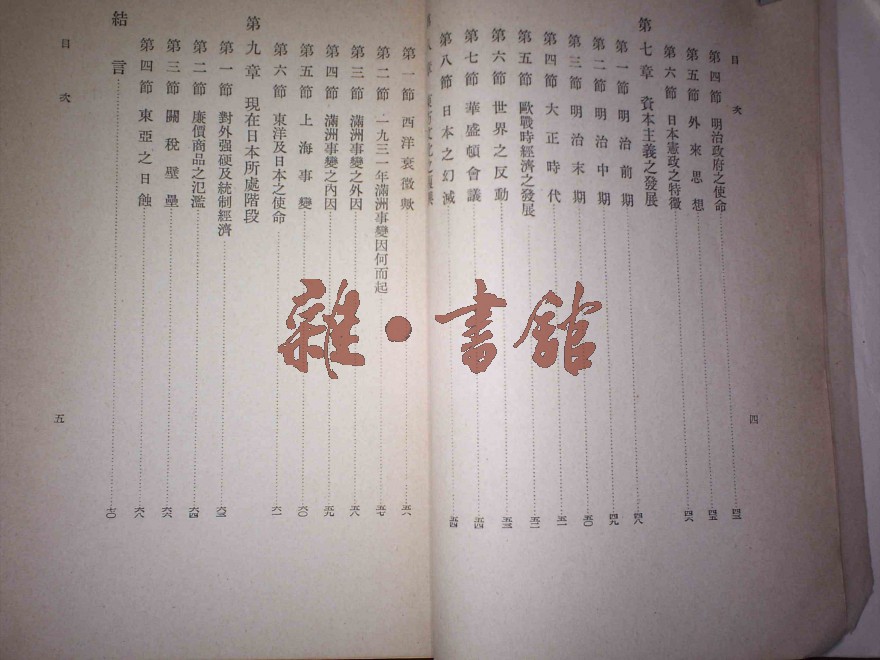 目次
第四節 明治政府之使命……四三
第五節 外來思想……四五
第六節 日本憲政之特徵……四六
第七章 資本主義之發展
第一節 明治前期……四八
第二節 明治中期……四九
第三節 明治末期……五〇
第四節 大正時代……五一
第五節 歐戰時經濟之發展……五二
第六節 世界之反動……五三
第七節 華盛頓會議……五四
第八節 日本之幻滅……五四
四
第一節 西洋衰微歟……五六
第二節 一九三一年滿洲事變因何而起……五七
第三節 滿洲事變之外因……五八
第四節 滿洲事變之內因……五九
第五節 上海事變……六〇
第六節 東洋及日本之使命……六一
第九章 現在日本所處階段
第一節 對外强硬及統制經濟……六三
第二節 廉價商品之氾濫……六四
第三節 關稅壁壘……六六
第四節 東亞之日蝕……六八
結言……七〇
目次
五
雜•書館